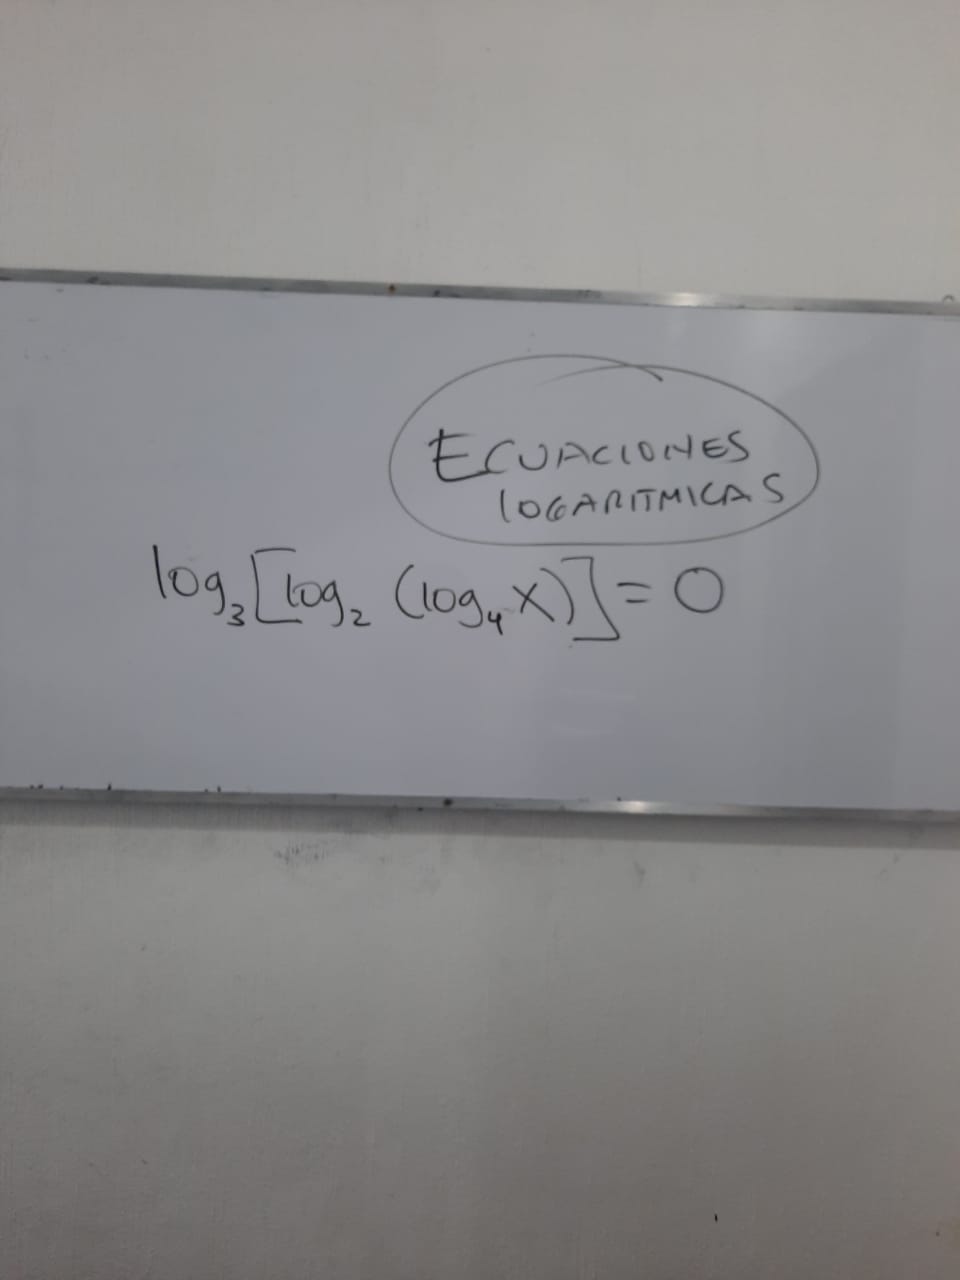 ECUACIONES
LOGARITMICAS
log₃[log₂ (log₄X)]=0